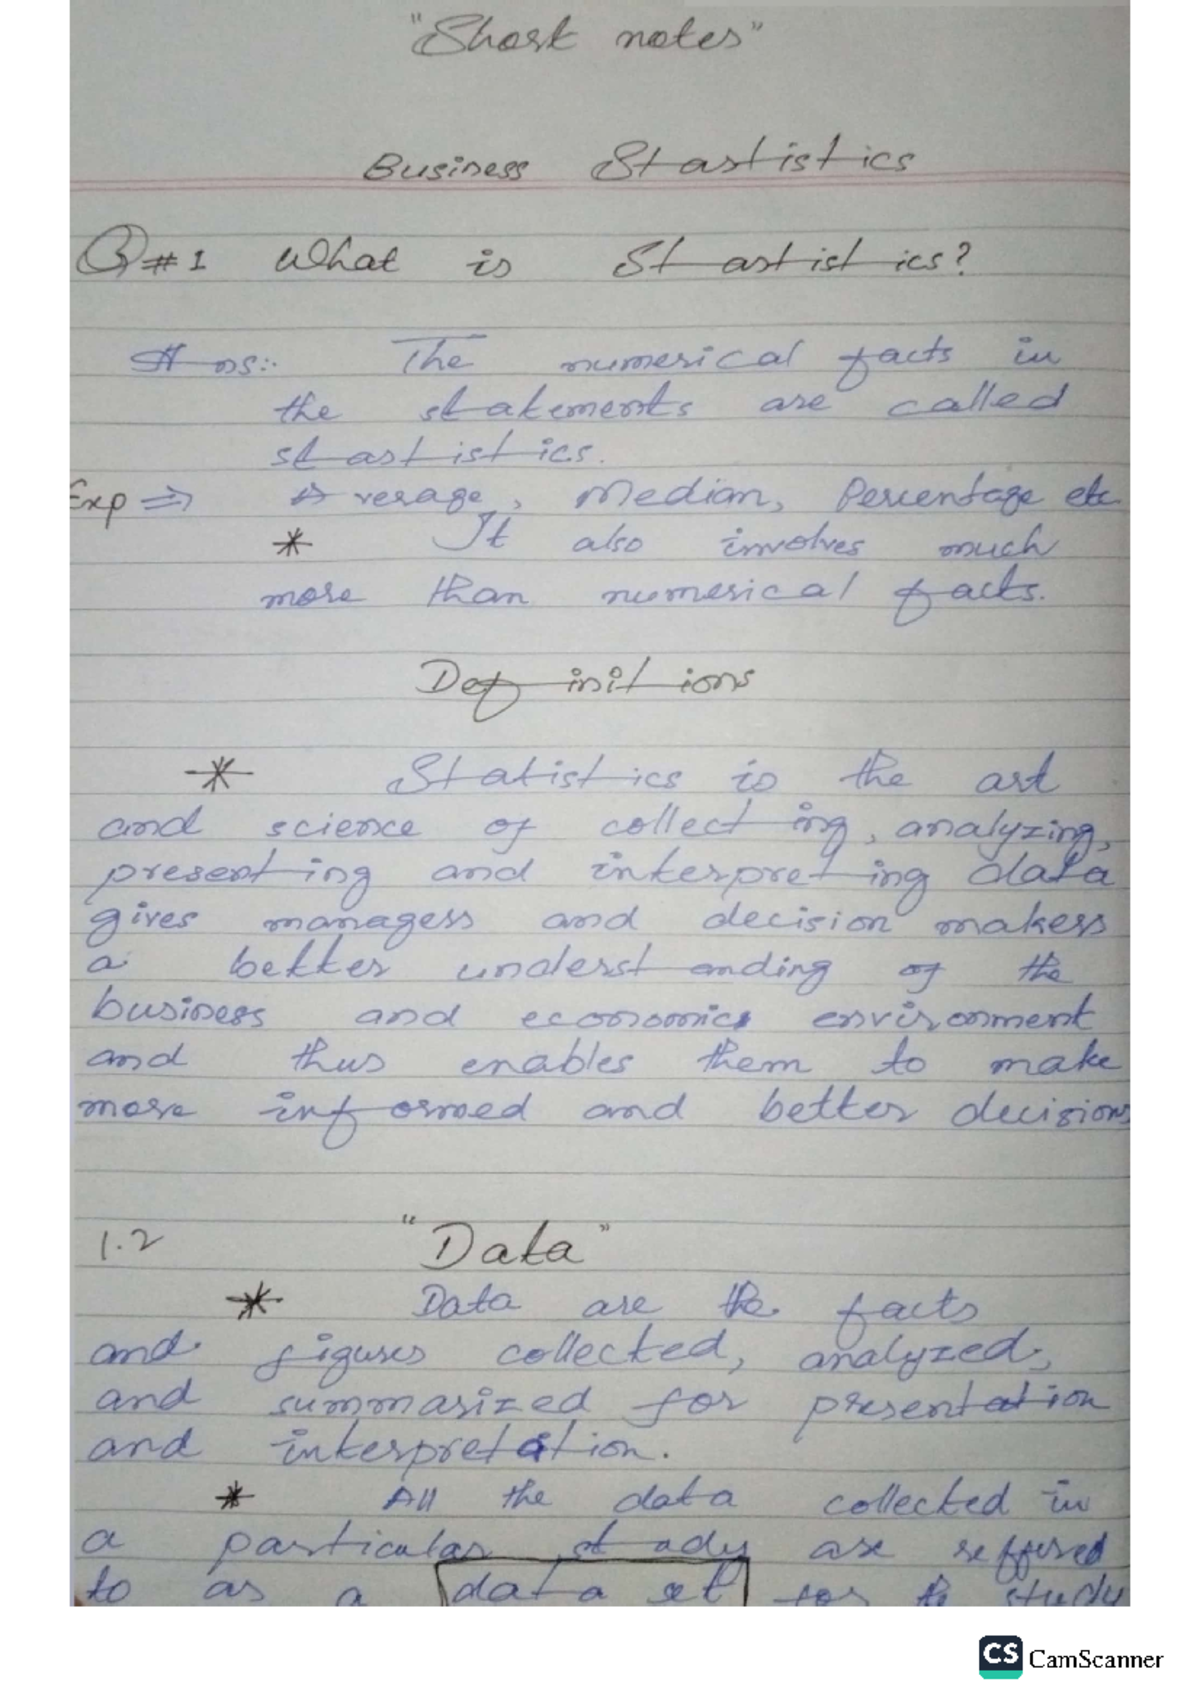 "Short notes"
Business Stastistics
Q#1 What is Stastistics?
Ans:- The numerical facts in
the statements are called
stastistics.
Exp ⇒ Average, Median, Percentage etc
* It also involves much
more than numerical facts.
Definitions
* Statistics is the art
and science of collecting, analyzing,
presenting and interpreting data
gives managers and decision makers
a better understanding of the
business and economics environment
and thus enables them to make
more informed and better decisions
1.2 "Data"
* Data are the facts
and figures collected, analyzed,
and summarized for presentation
and interpretation.
* All the data collected in
a particular study are reffered
to as a data set for the study
CS CamScanner